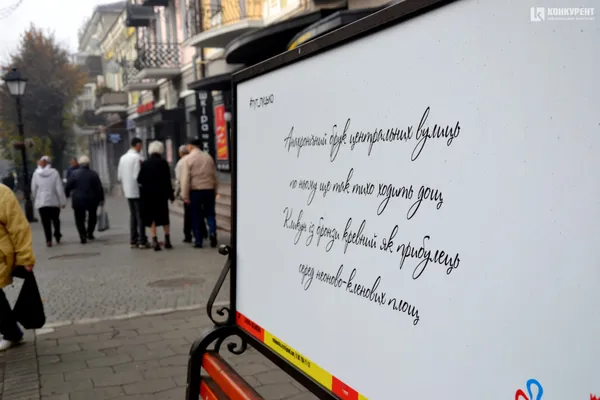 КОНКУРЕНТ
#тут_луцько
Архаїчний брук центральних вулиць
по ньому ще так тихо ходить дощ
Кликун із бронзи кревний як прибулець
серед неоново-кленових площ
KIDO